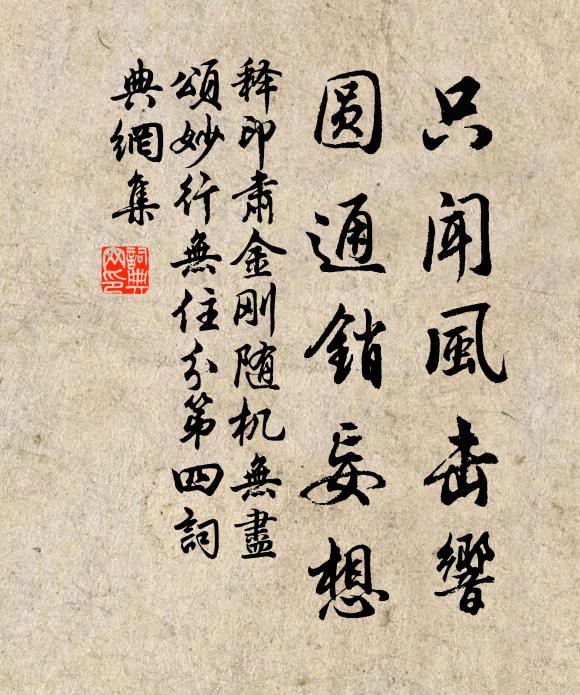 只闻風击響
圆通銷妄想
释印肃金刚随机無盡
頌妙行無住分第四詞
典網集
詞典網印